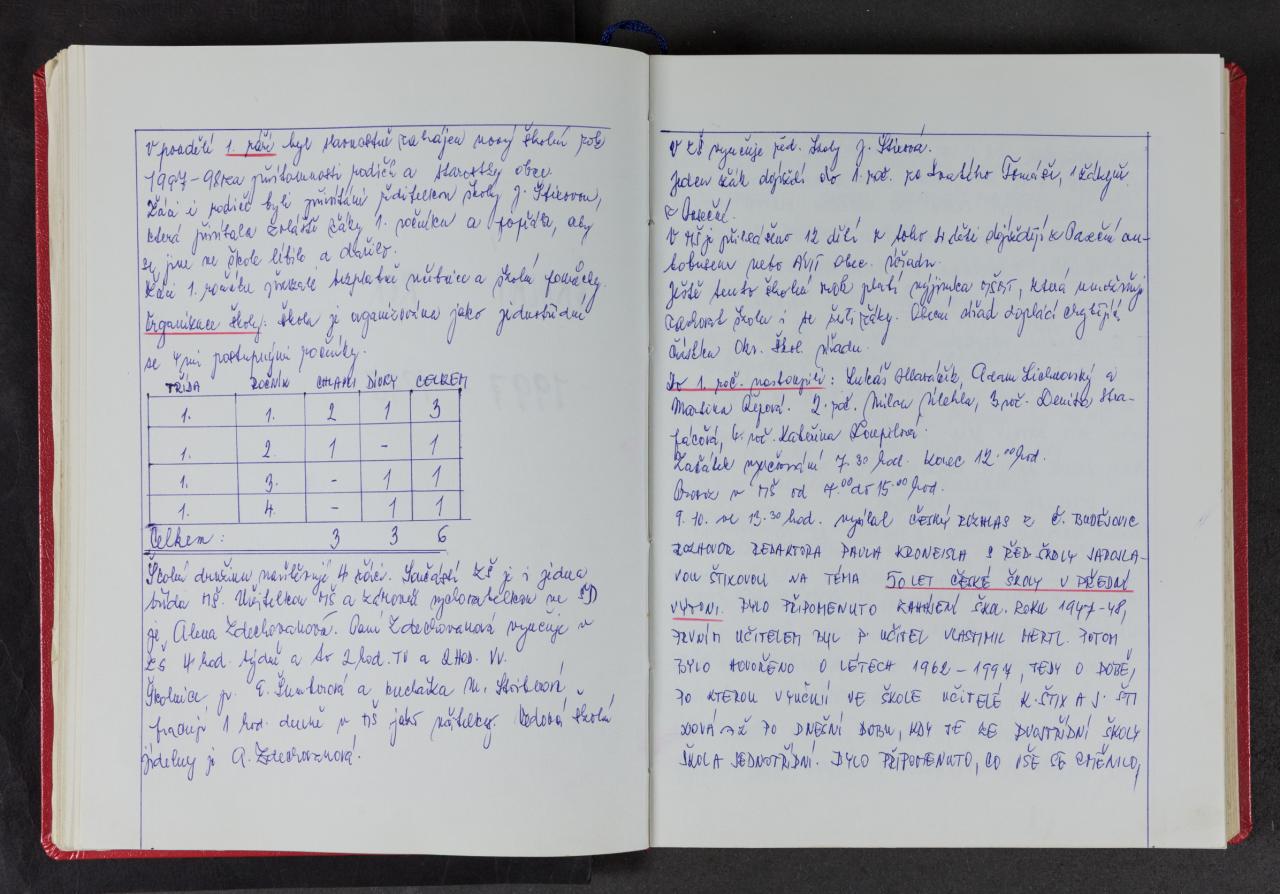 V pondělí 1. září byl slavnostně zahájen nový školní rok
1997-98 za přítomnosti rodičů a starostky obce.
Žáci i rodiče byli přivítáni ředitelkou školy J. Štixovou,
která přivítala zvláště žáky 1. ročníku a popřála, aby
se jim ve škole líbilo a dařilo.
Žáci 1. ročníku získali bezplatně učebnice a školní pomůcky.
Organizace školy: Škola je organizována jako jednotřídní
se 4mi postupnými ročníky.
TŘÍDA ROČNÍK CHLAPCI DÍVKY CELKEM
1. 1. 2 1 3
1. 2. 1 - 1
1. 3. - 1 1
1. 4. - 1 1
Celkem: 3 3 6
Školní družinu navštěvují 4 žáci. Součástí ZŠ je i jedna
třída MŠ. Učitelkou MŠ a zároveň vychovatelkou ve ŠD
je Alena Zdechovanová. Paní Zdechovanová vyučuje v
ZŠ 4 hod. týdně a to 2 hod. TV a 2 HOD. VV.
Školnice p. E. Šumberová a kuchařka M.
pracují 1 hod. denně v MŠ jako učitelky. Vedoucí školní
jídelny je A. Zdechovanová.
V ZŠ vyučuje řed. školy J. Štixová.
Jeden žák dojíždí do 1. roč. ze Svatého Tomáše, 1 žákyně
z Pasečné.
V MŠ je přihlášeno 12 dětí z toho 4 děti dojíždějí z Pasečné au-
tobusem nebo AVII Obec. úřadu.
Ještě tento školní rok platí výjimka MŠMT, která umožňuje
zachovat školu i se šesti žáky. Obecní úřad doplácí chybějící
částku Okr. škol. úřadu.
Do 1. roč. nastoupili: Lukáš Adam a
Martina Řepová. 2. roč. Milan 3. roč. Denisa
4. roč. Kateřina Koupilová.
Začátek vyučování 7.30 hod. Konec 12.00 hod.
Provoz v MŠ od 7.00 do 15.00 hod.
9.10. ve 13.30 hod. vysílal ČESKÝ ROZHLAS z Č. BUDĚJOVIC
ROZHOVOR REDAKTORA PAVLA KRONEISLA S ŘED. ŠKOLY JAROSLA-
VOU ŠTIXOVOU NA TÉMA 50 LET ČESKÉ ŠKOLY V PŘEDNÍ
VÝTONI. BYLO PŘIPOMENUTO ZAHÁJENÍ ŠKOL. ROKU 1947-48,
PRVNÍM UČITELEM BYL P. UČITEL VLASTIMIL HERTL. POTOM
BYLO HOVOŘENO O LÉTECH 1962-1997, TEDY O DOBĚ,
PO KTEROU VYUČUJÍ VE ŠKOLE UČITELÉ K. ŠTIX A J. ŠTI
XOVÁ AŽ PO DNEŠNÍ DOBU, KDY JE ZE DVOUTŘÍDNÍ ŠKOLY
ŠKOLA JEDNOTŘÍDNÍ. BYLO PŘIPOMENUTO, CO VŠE SE ZMĚNILO,